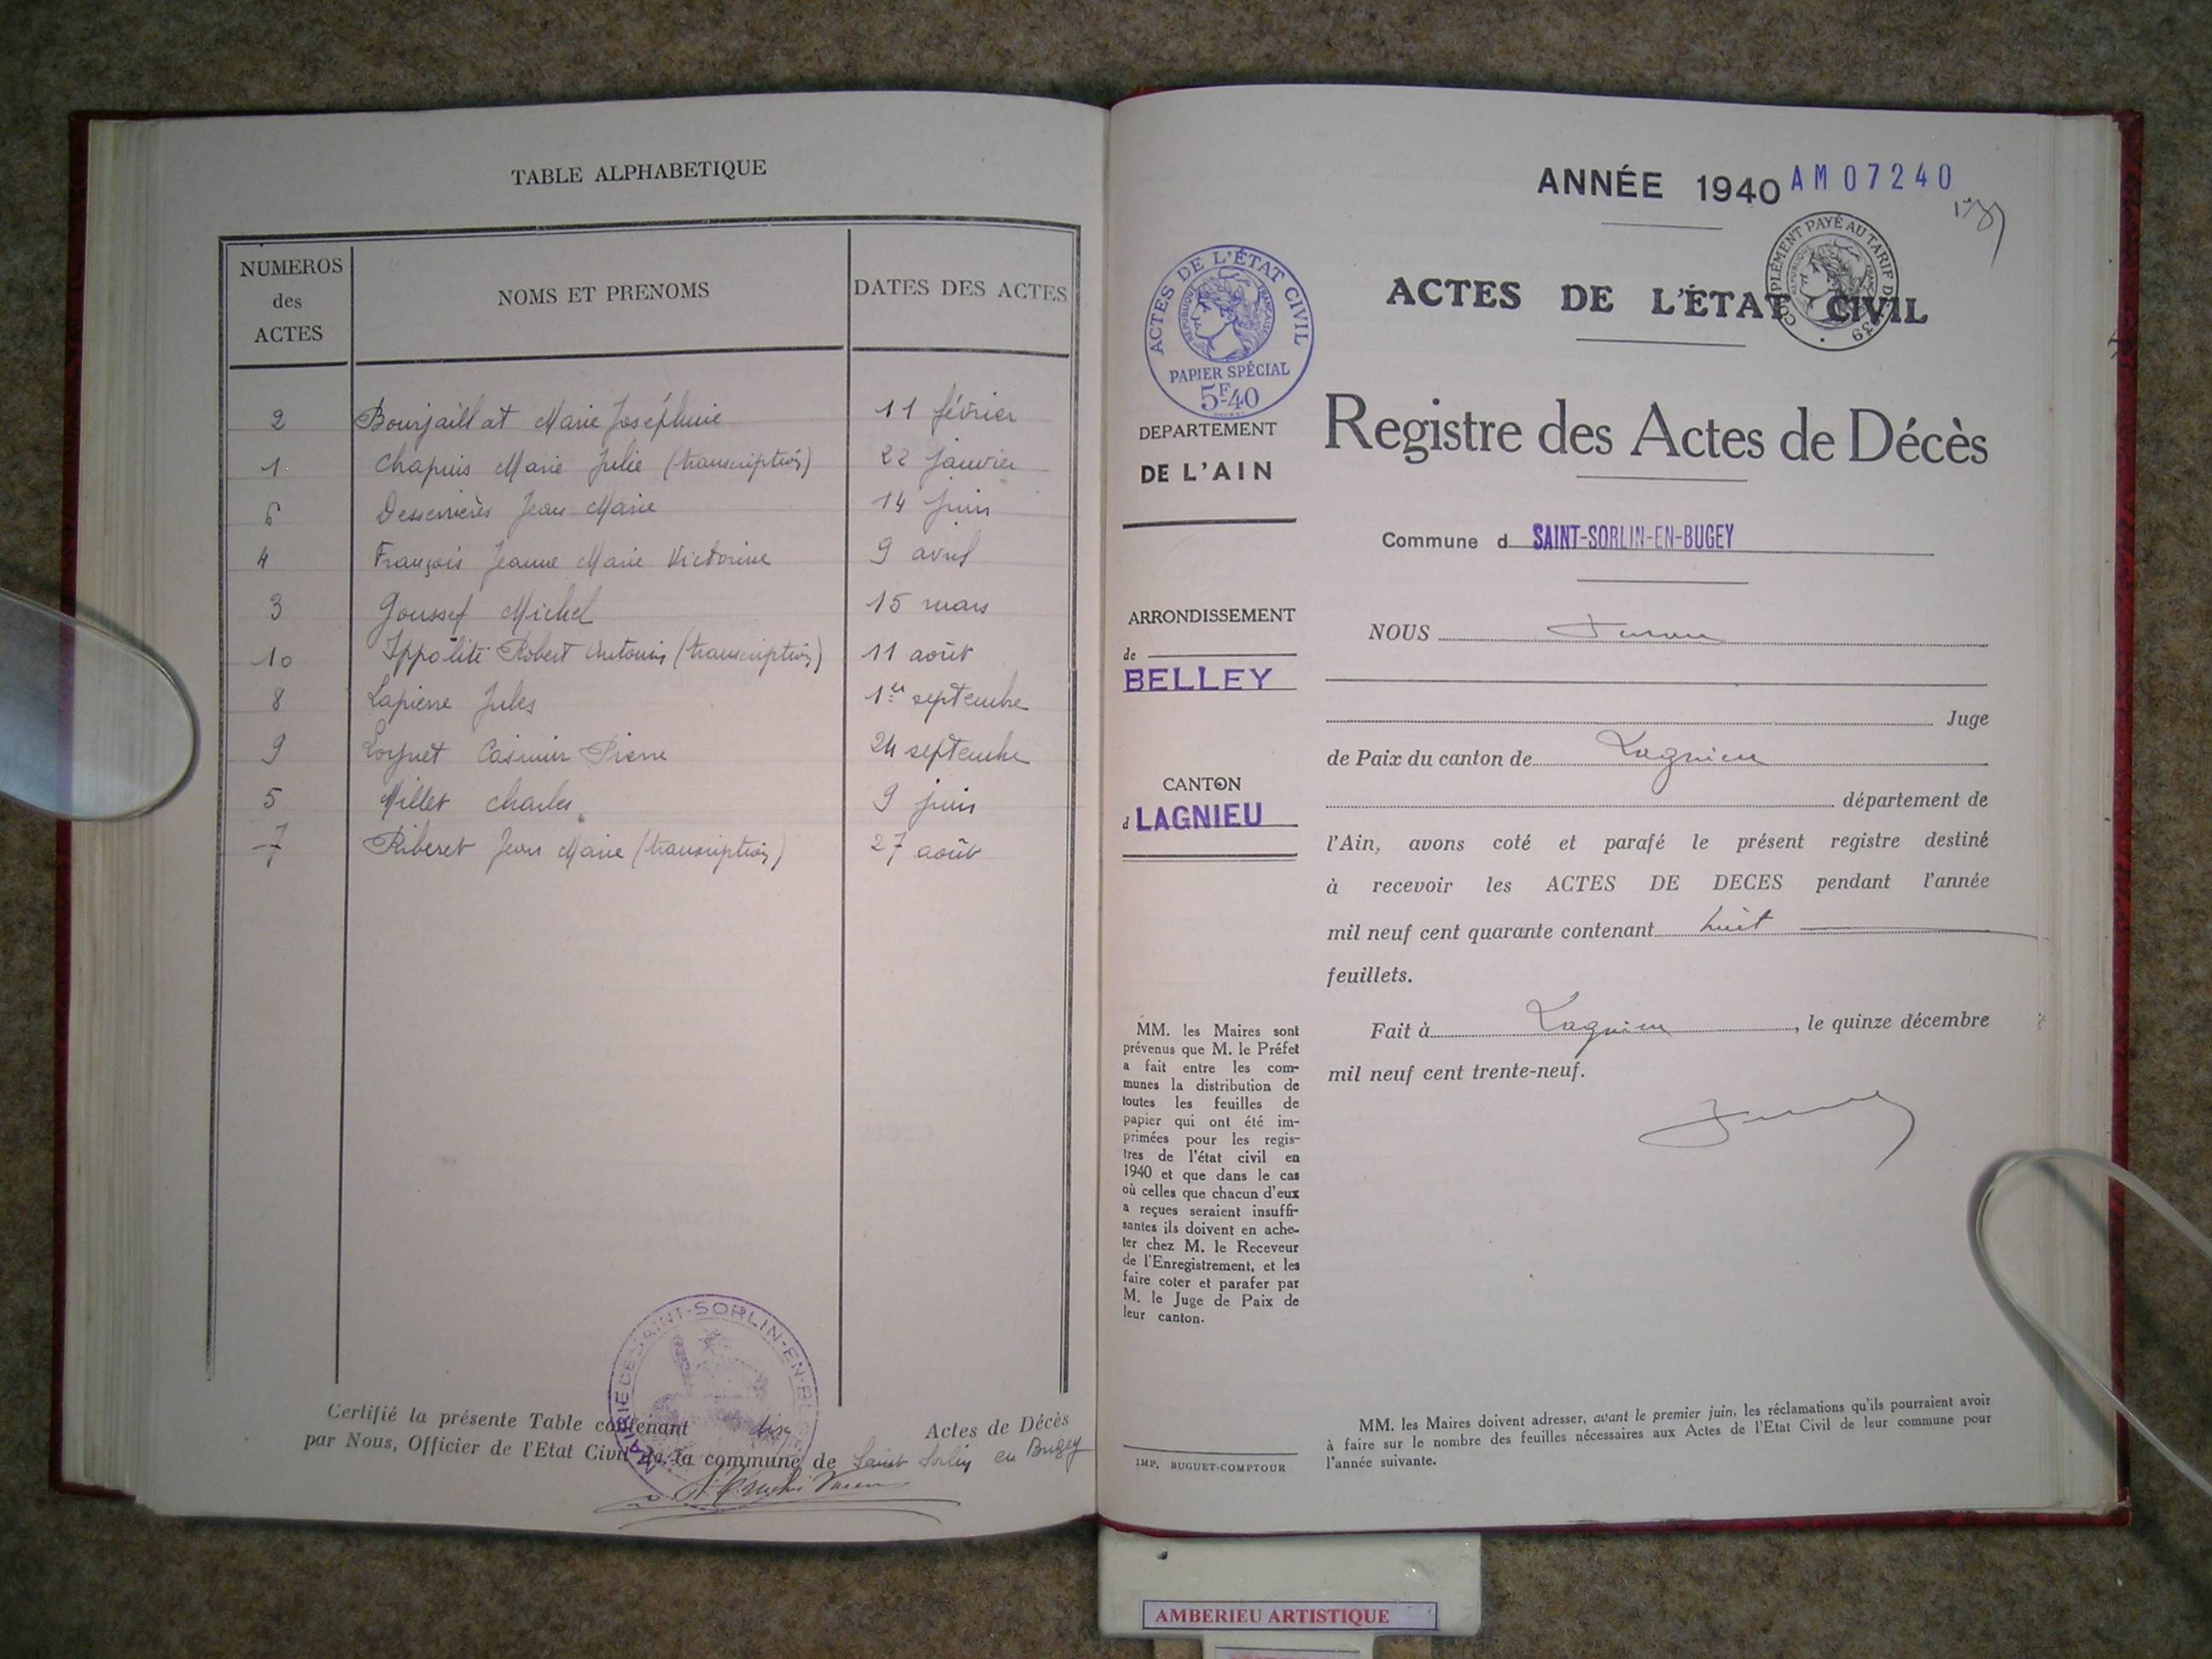 TABLE ALPHABETIQUE
NUMEROS
des
ACTES
NOMS ET PRENOMS
DATES DES ACTES
2 Bourjaillat Marie Joséphine 11 février
1 Chapuis Marie Julie (transcription) 22 janvier
6 Jean Marie 14 juin
4 François Jeanne Marie Victorine 9 avril
3 Goussef Michel 15 mars
10 Ippoliti Robert Antonin (transcription) 11 août
8 Lapierre Jules 1er septembre
9 Casimir Pierre 24 septembre
5 Millet Charles 9 juin
7 Riberet Jean Marie (transcription) 27 août
MAIRIE DE SAINT-SORLIN-EN-B
Certifié la présente Table contenant dix Actes de Décès
par Nous, Officier de l'Etat Civil de la commune de Saint Sorlin en Bugey
ANNÉE 1940 AM07240
COMPLÉMENT PAYÉ AU TARIF DE 1939
RÉPUBLIQUE FRANÇAISE
ACTES DE L'ÉTAT CIVIL
RÉPUBLIQUE FRANÇAISE
PAPIER SPÉCIAL
5F.40
ACTES DE L'ÉTAT CIVIL
Registre des Actes de Décès
DEPARTEMENT
DE L'AIN
Commune d SAINT-SORLIN-EN-BUGEY
ARRONDISSEMENT
de
BELLEY
CANTON
d LAGNIEU
NOUS
Juge
de Paix du canton de Lagnieu
département de
l'Ain, avons coté et parafé le présent registre destiné
à recevoir les ACTES DE DECES pendant l'année
mil neuf cent quarante contenant huit
feuillets.
Fait à Lagnieu, le quinze décembre
mil neuf cent trente-neuf.
MM. les Maires sont
prévenus que M. le Préfet
a fait entre les com-
munes la distribution de
toutes les feuilles de
papier qui ont été im-
primées pour les regis-
tres de l'état civil en
1940 et que dans le cas
où celles que chacun d'eux
a reçues seraient insuffi-
santes ils doivent en ache-
ter chez M. le Receveur
de l'Enregistrement, et les
faire coter et parafer par
M. le Juge de Paix de
leur canton.
IMP. BUGUET-COMPTOUR
MM. les Maires doivent adresser, avant le premier juin, les réclamations qu'ils pourraient avoir
à faire sur le nombre des feuilles nécessaires aux Actes de l'Etat Civil de leur commune pour
l'année suivante.
AMBERIEU ARTISTIQUE